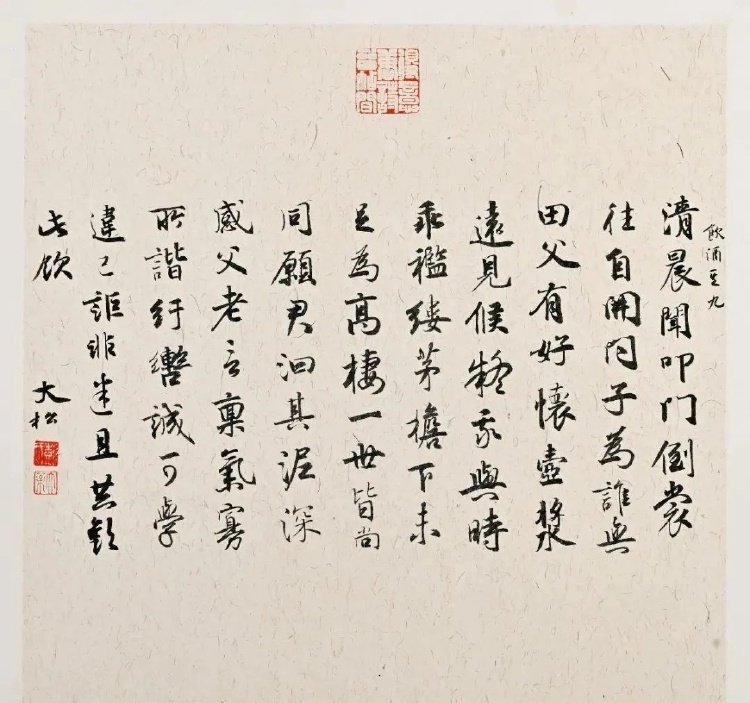 飲酒其九
清晨聞叩门倒裳
往自開问子為誰与
田父有好懷壺漿
遠見候疑我與時
乖襤縷茅檐下未
足為高棲一世皆尚
同願君汩其泥深
感父老言禀氣寡
所諧紆轡誠可學
違己詎非迷且共歡
此飲
大松